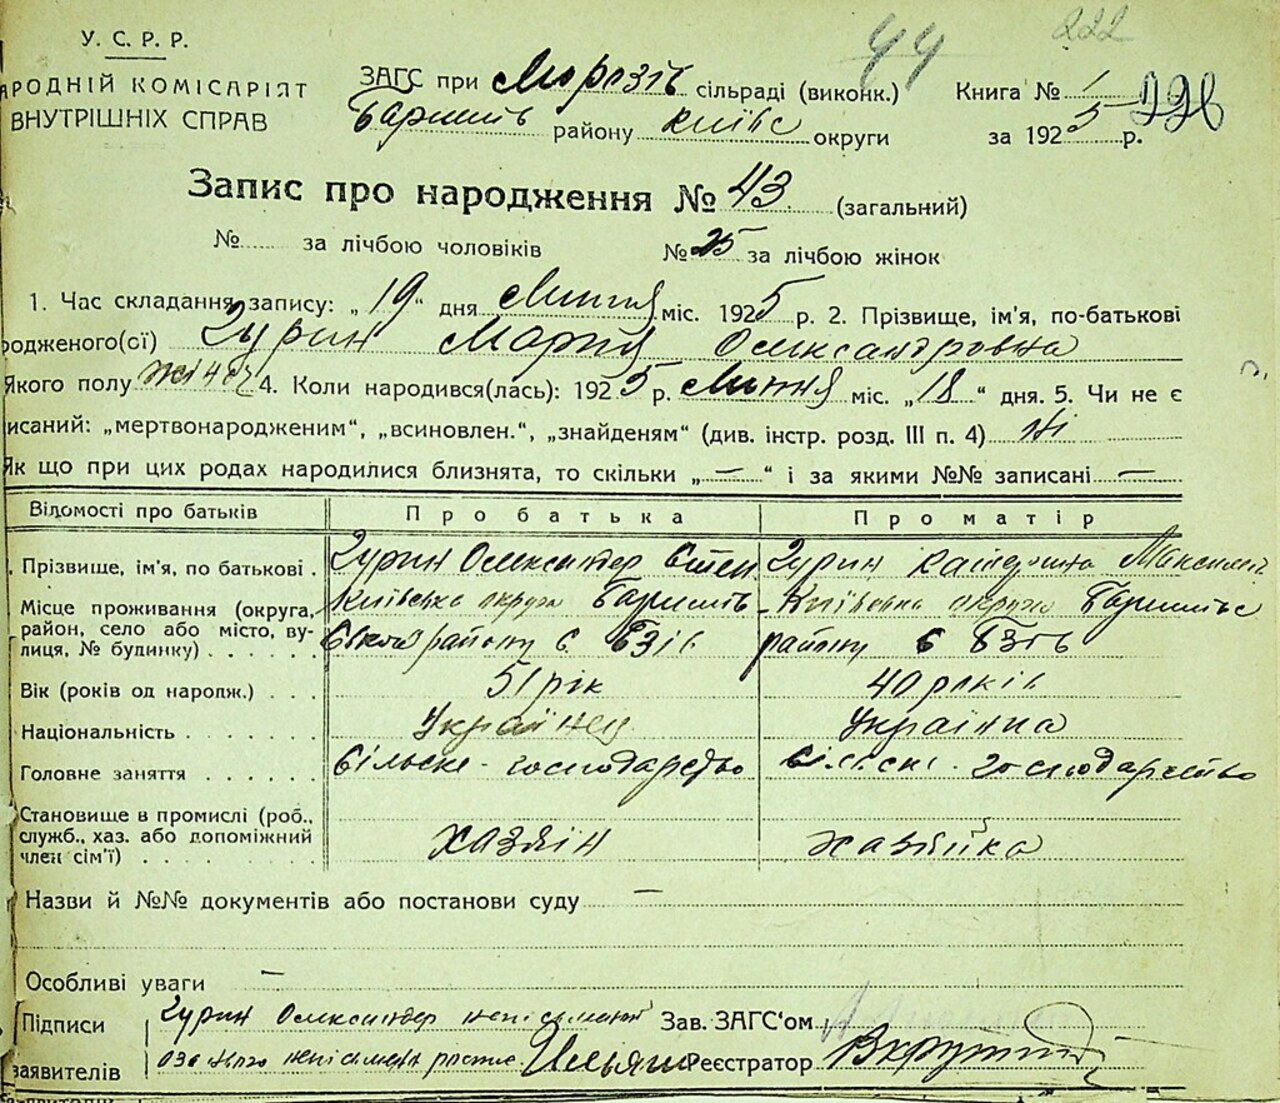 44 222
У. С. Р. Р.
АРОДНІЙ КОМІСАРІЯТ
ВНУТРІШНІХ СПРАВ
ЗАГС при Морозів сільраді (виконк.)
Баришів району Київс округи
Книга № 1
за 1925 р.
226
Запис про народження № 43 (загальний)
№ за лічбою чоловіків № 25 за лічбою жінок
1. Час складання запису: „19“ дня Липня міс. 1925 р. 2. Прізвище, ім'я, по-батькові
родженого(ої) Зурин Мария Олександровна
Якого полу жіноч 4. Коли народився(лась): 1925 р. Липня міс. „18“ дня. 5. Чи не є
исаний: „мертвонародженим“, „всиновлен.“, „знайденям“ (див. інстр. розд. III п. 4) Ні
Як що при цих родах народилися близнята, то скільки „—“ і за якими №№ записані —
Відомості про батьків Про батька Про матір
Прізвище, ім'я, по батькові Зурин Олександер Степ Зурин Катерина Максимів
Місце проживання (округа, Київська округа Баришів Київська округа Баришівс
район, село або місто, ву- району с Бзів району с Бзів
лиця, № будинку)
Вік (років од народж.) 51 рік 40 років
Національність Українец Українка
Головне заняття Сільске - господарство Сільскі - господарство
Становище в промислі (роб.,
служб., хаз. або допоміжний хазяїн хазяйка
член сім'ї)
Назви й №№ документів або постанови суду —
Особливі уваги —
Підписи Зурин Олександер неписьменний Зав. ЗАГС'ом
заявителів неписьмен роспис Ильяш Реєстратор